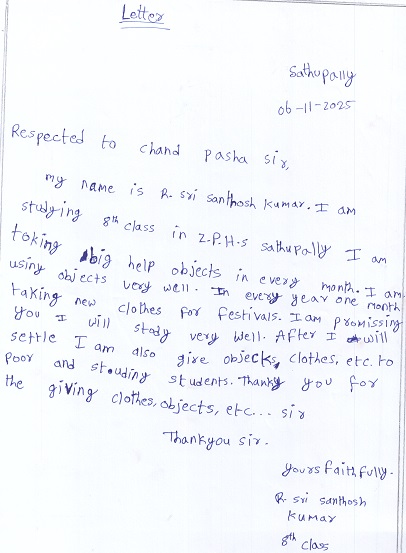 Letter
Sathupally
06-11-2025
Respected to chand pasha sir,
my name is R. sri santhosh kumar. I am
studying 8th class in Z.P.H.s sathupally I am
taking big help objects in every month. I am
using objects very well. In every year one month
taking new clothes for festivals. I am promissing
you I will study very well. After I will
settle I am also give objecks, clothes, etc. to
poor and stouding students. Thanky you for
the giving clothes, objects, etc... sir
Thankyou sir.
yours faithfully.
R. sri santhosh
kumar
8th class